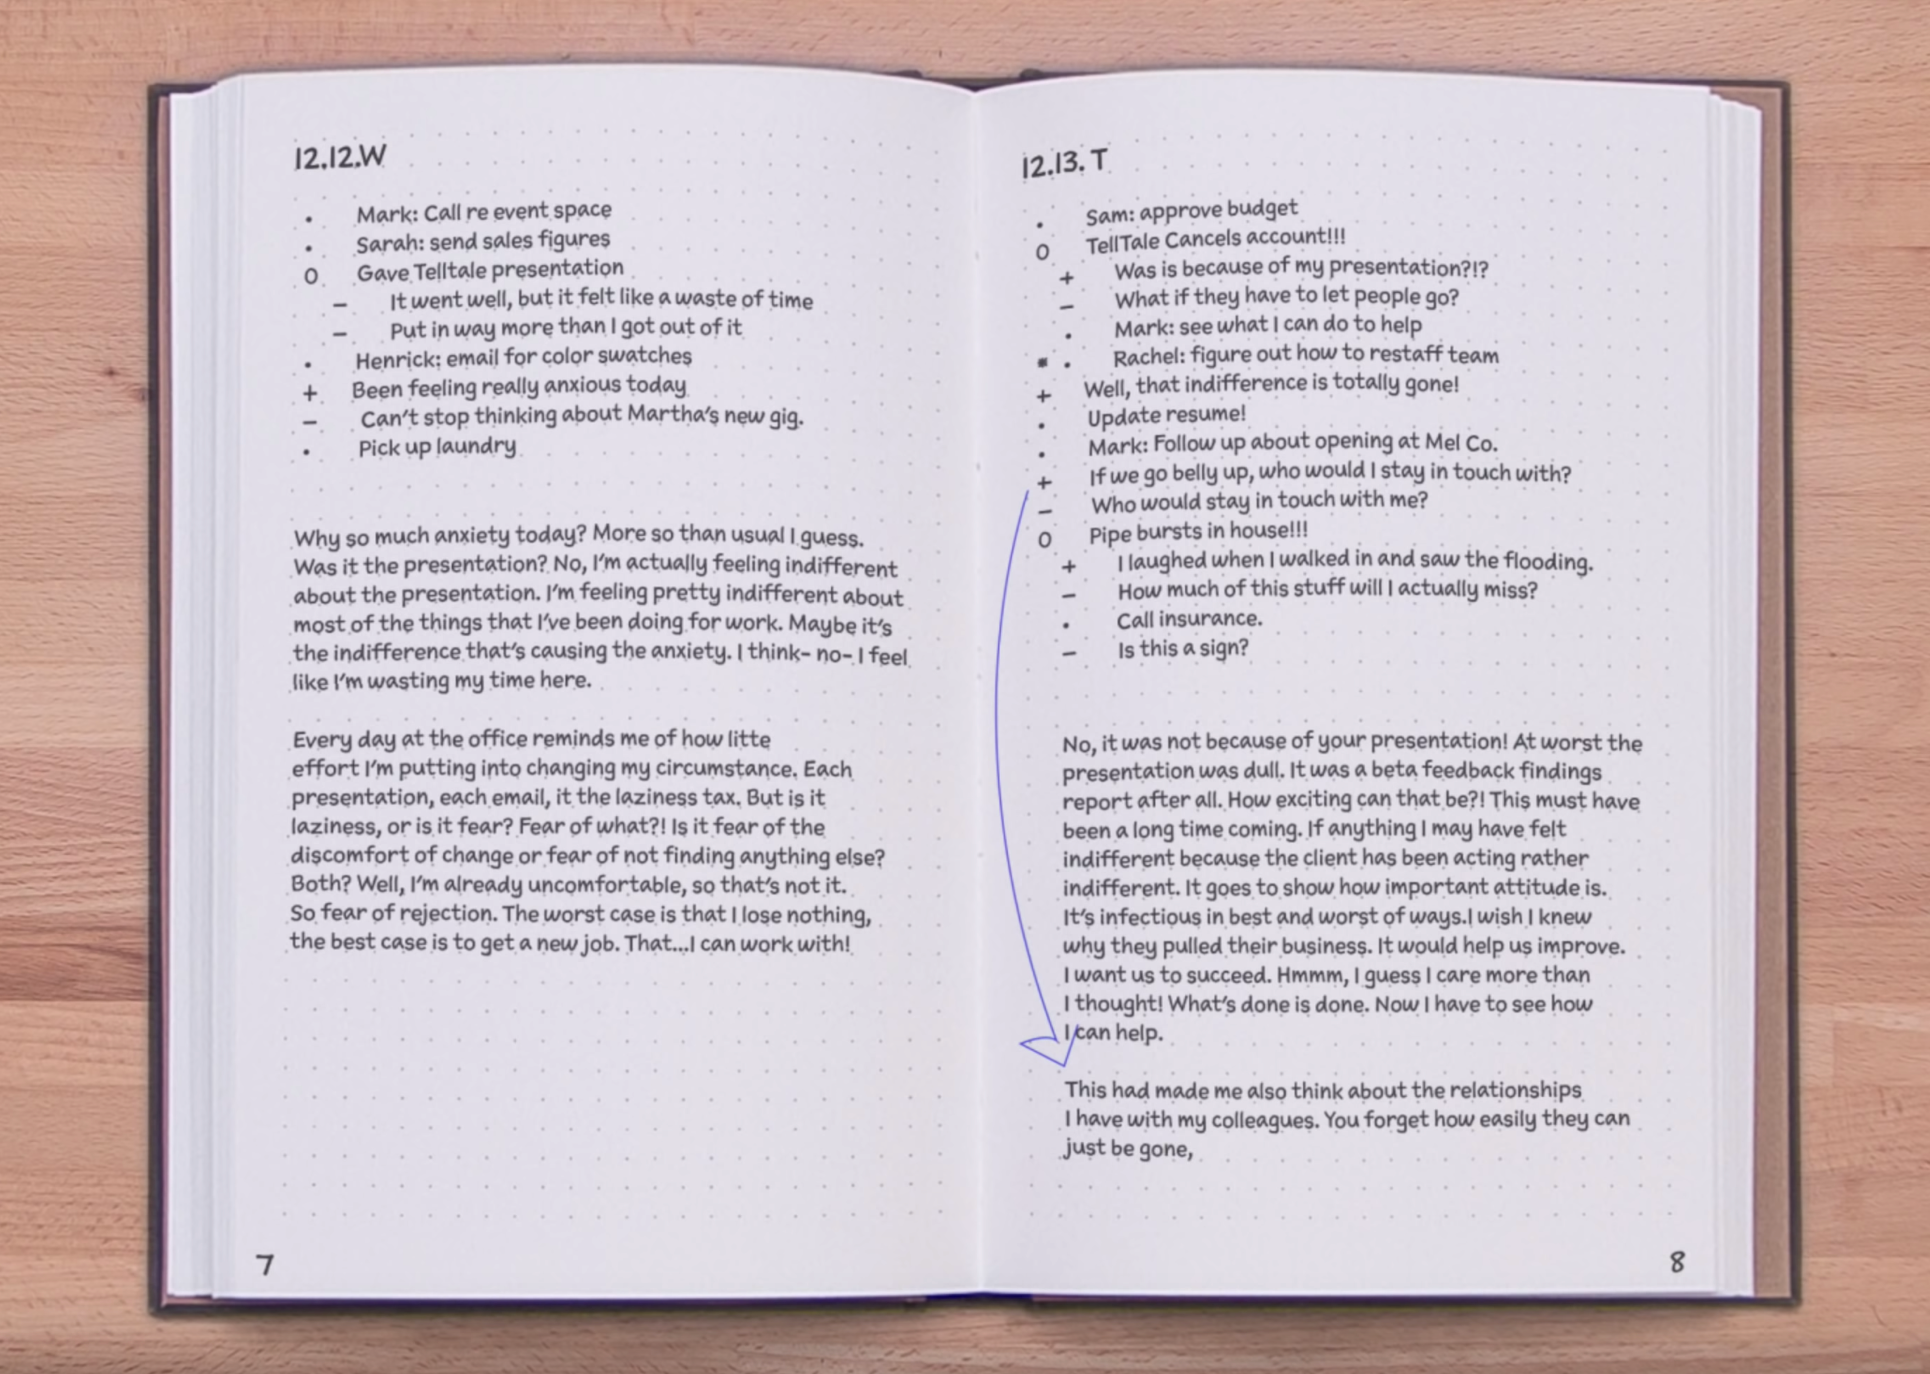 12.12.W
. Mark: Call re event space
. Sarah: send sales figures
O Gave Telltale presentation
– It went well, but it felt like a waste of time
– Put in way more than I got out of it
. Henrick: email for color swatches
+ Been feeling really anxious today
– Can't stop thinking about Martha's new gig.
. Pick up laundry
Why so much anxiety today? More so than usual I guess.
Was it the presentation? No, I'm actually feeling indifferent
about the presentation. I'm feeling pretty indifferent about
most of the things that I've been doing for work. Maybe it's
the indifference that's causing the anxiety. I think– no– I feel
like I'm wasting my time here.
Every day at the office reminds me of how litte
effort I'm putting into changing my circumstance. Each
presentation, each email, it the laziness tax. But is it
laziness, or is it fear? Fear of what?! Is it fear of the
discomfort of change or fear of not finding anything else?
Both? Well, I'm already uncomfortable, so that's not it.
So fear of rejection. The worst case is that I lose nothing,
the best case is to get a new job. That...I can work with!
7
12.13. T
. Sam: approve budget
O TellTale Cancels account!!!
+ Was is because of my presentation?!?
– What if they have to let people go?
. Mark: see what I can do to help
* . Rachel: figure out how to restaff team
+ Well, that indifference is totally gone!
. Update resume!
. Mark: Follow up about opening at Mel Co.
+ If we go belly up, who would I stay in touch with?
– Who would stay in touch with me?
O Pipe bursts in house!!!
+ I laughed when I walked in and saw the flooding.
– How much of this stuff will I actually miss?
. Call insurance.
– Is this a sign?
No, it was not because of your presentation! At worst the
presentation was dull. It was a beta feedback findings
report after all. How exciting can that be?! This must have
been a long time coming. If anything I may have felt
indifferent because the client has been acting rather
indifferent. It goes to show how important attitude is.
It's infectious in best and worst of ways.I wish I knew
why they pulled their business. It would help us improve.
I want us to succeed. Hmmm, I guess I care more than
I thought! What's done is done. Now I have to see how
I can help.
This had made me also think about the relationships
I have with my colleagues. You forget how easily they can
just be gone,
8